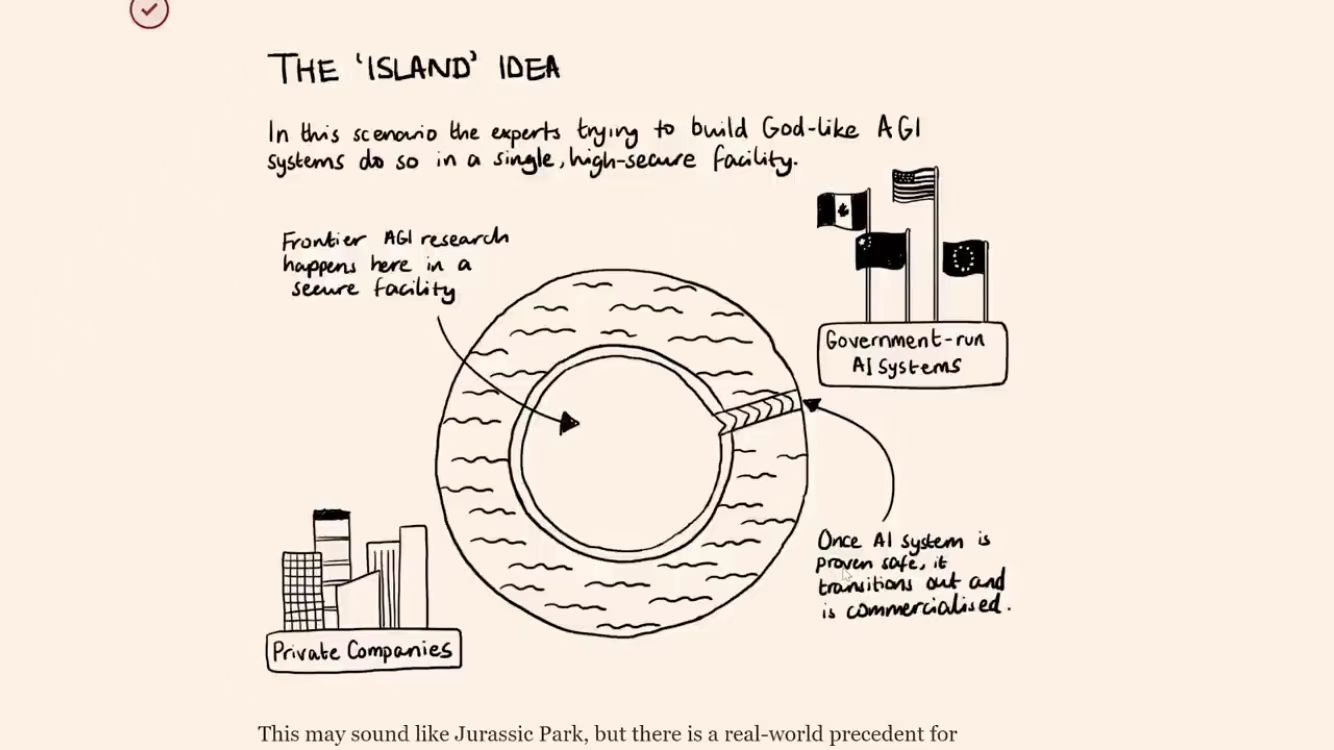 THE 'ISLAND' IDEA
In this scenario the experts trying to build God-like AGI
systems do so in a single, high-secure facility.
Frontier AGI research
happens here in a
secure facility
Government-run
AI systems
Once AI system is
proven safe, it
transitions out and
is commercialised.
Private Companies
This may sound like Jurassic Park, but there is a real-world precedent for